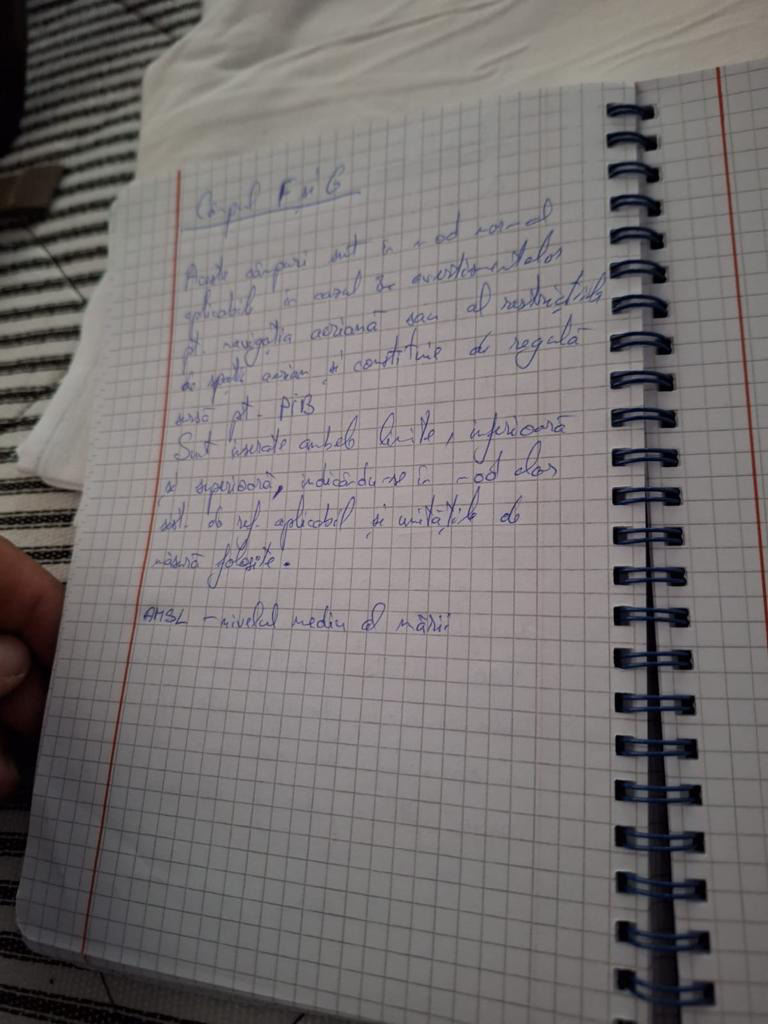 Câmpul F și G
Aceste câmpuri sunt în mod normal
aplicabile în cazul de avertismentelor
pt. navigația aeriană sau al restricțiile
de spațiu aerian și constituie de regulă
sursă pt. PIB
Sunt inserate ambele limite, inferioară
și superioară, indicându-se în mod clar
sist. de ref. aplicabil și unitățile de
măsură folosite.
AMSL - nivelul mediu al mării